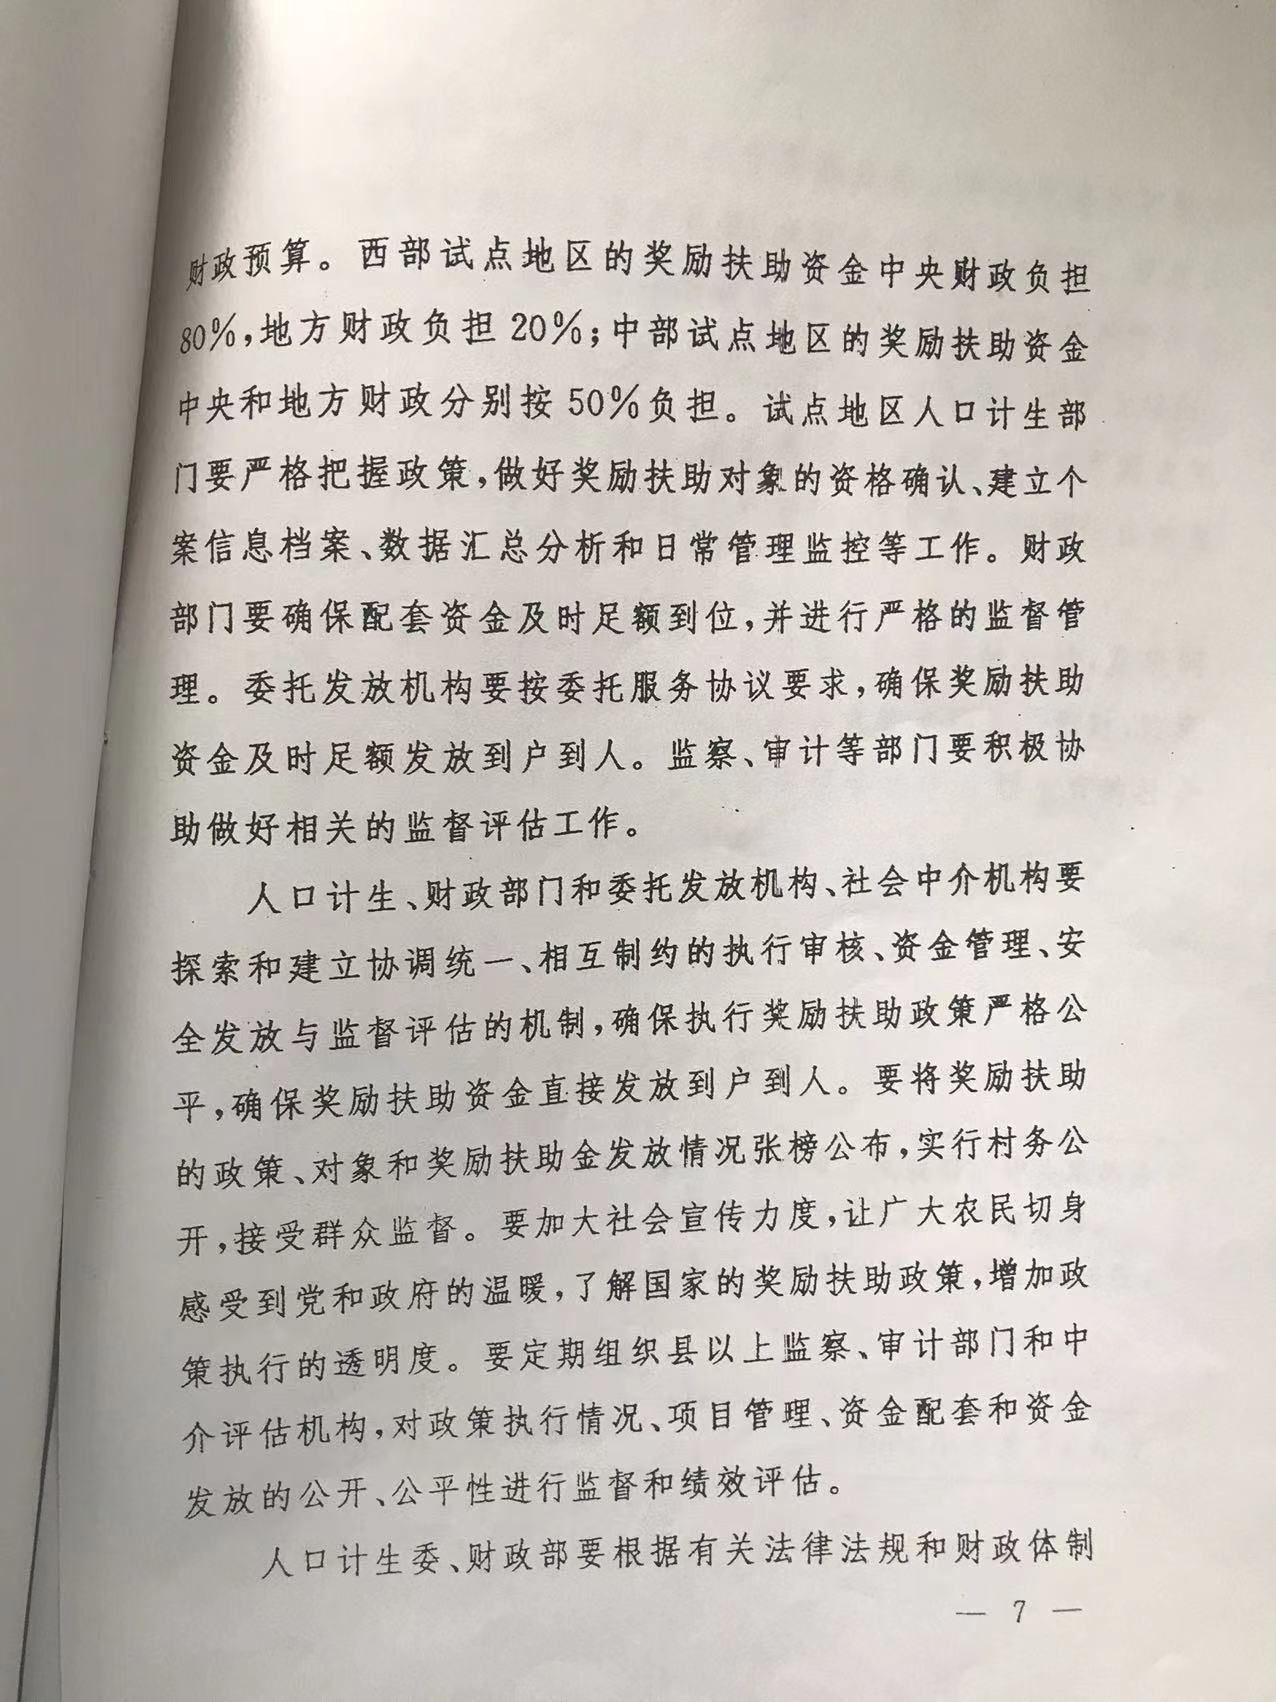 财政预算。西部试点地区的奖励扶助资金中央财政负担
80%,地方财政负担20%;中部试点地区的奖励扶助资金
中央和地方财政分别按50%负担。试点地区人口计生部
门要严格把握政策,做好奖励扶助对象的资格确认、建立个
案信息档案、数据汇总分析和日常管理监控等工作。财政
部门要确保配套资金及时足额到位,并进行严格的监督管
理。委托发放机构要按委托服务协议要求,确保奖励扶助
资金及时足额发放到户到人。监察、审计等部门要积极协
助做好相关的监督评估工作。
人口计生、财政部门和委托发放机构、社会中介机构要
探索和建立协调统一、相互制约的执行审核、资金管理、安
全发放与监督评估的机制,确保执行奖励扶助政策严格公
平,确保奖励扶助资金直接发放到户到人。要将奖励扶助
的政策、对象和奖励扶助金发放情况张榜公布,实行村务公
开,接受群众监督。要加大社会宣传力度,让广大农民切身
感受到党和政府的温暖,了解国家的奖励扶助政策,增加政
策执行的透明度。要定期组织县以上监察、审计部门和中
介评估机构,对政策执行情况、项目管理、资金配套和资金
发放的公开、公平性进行监督和绩效评估。
人口计生委、财政部要根据有关法律法规和财政体制
— 7 —